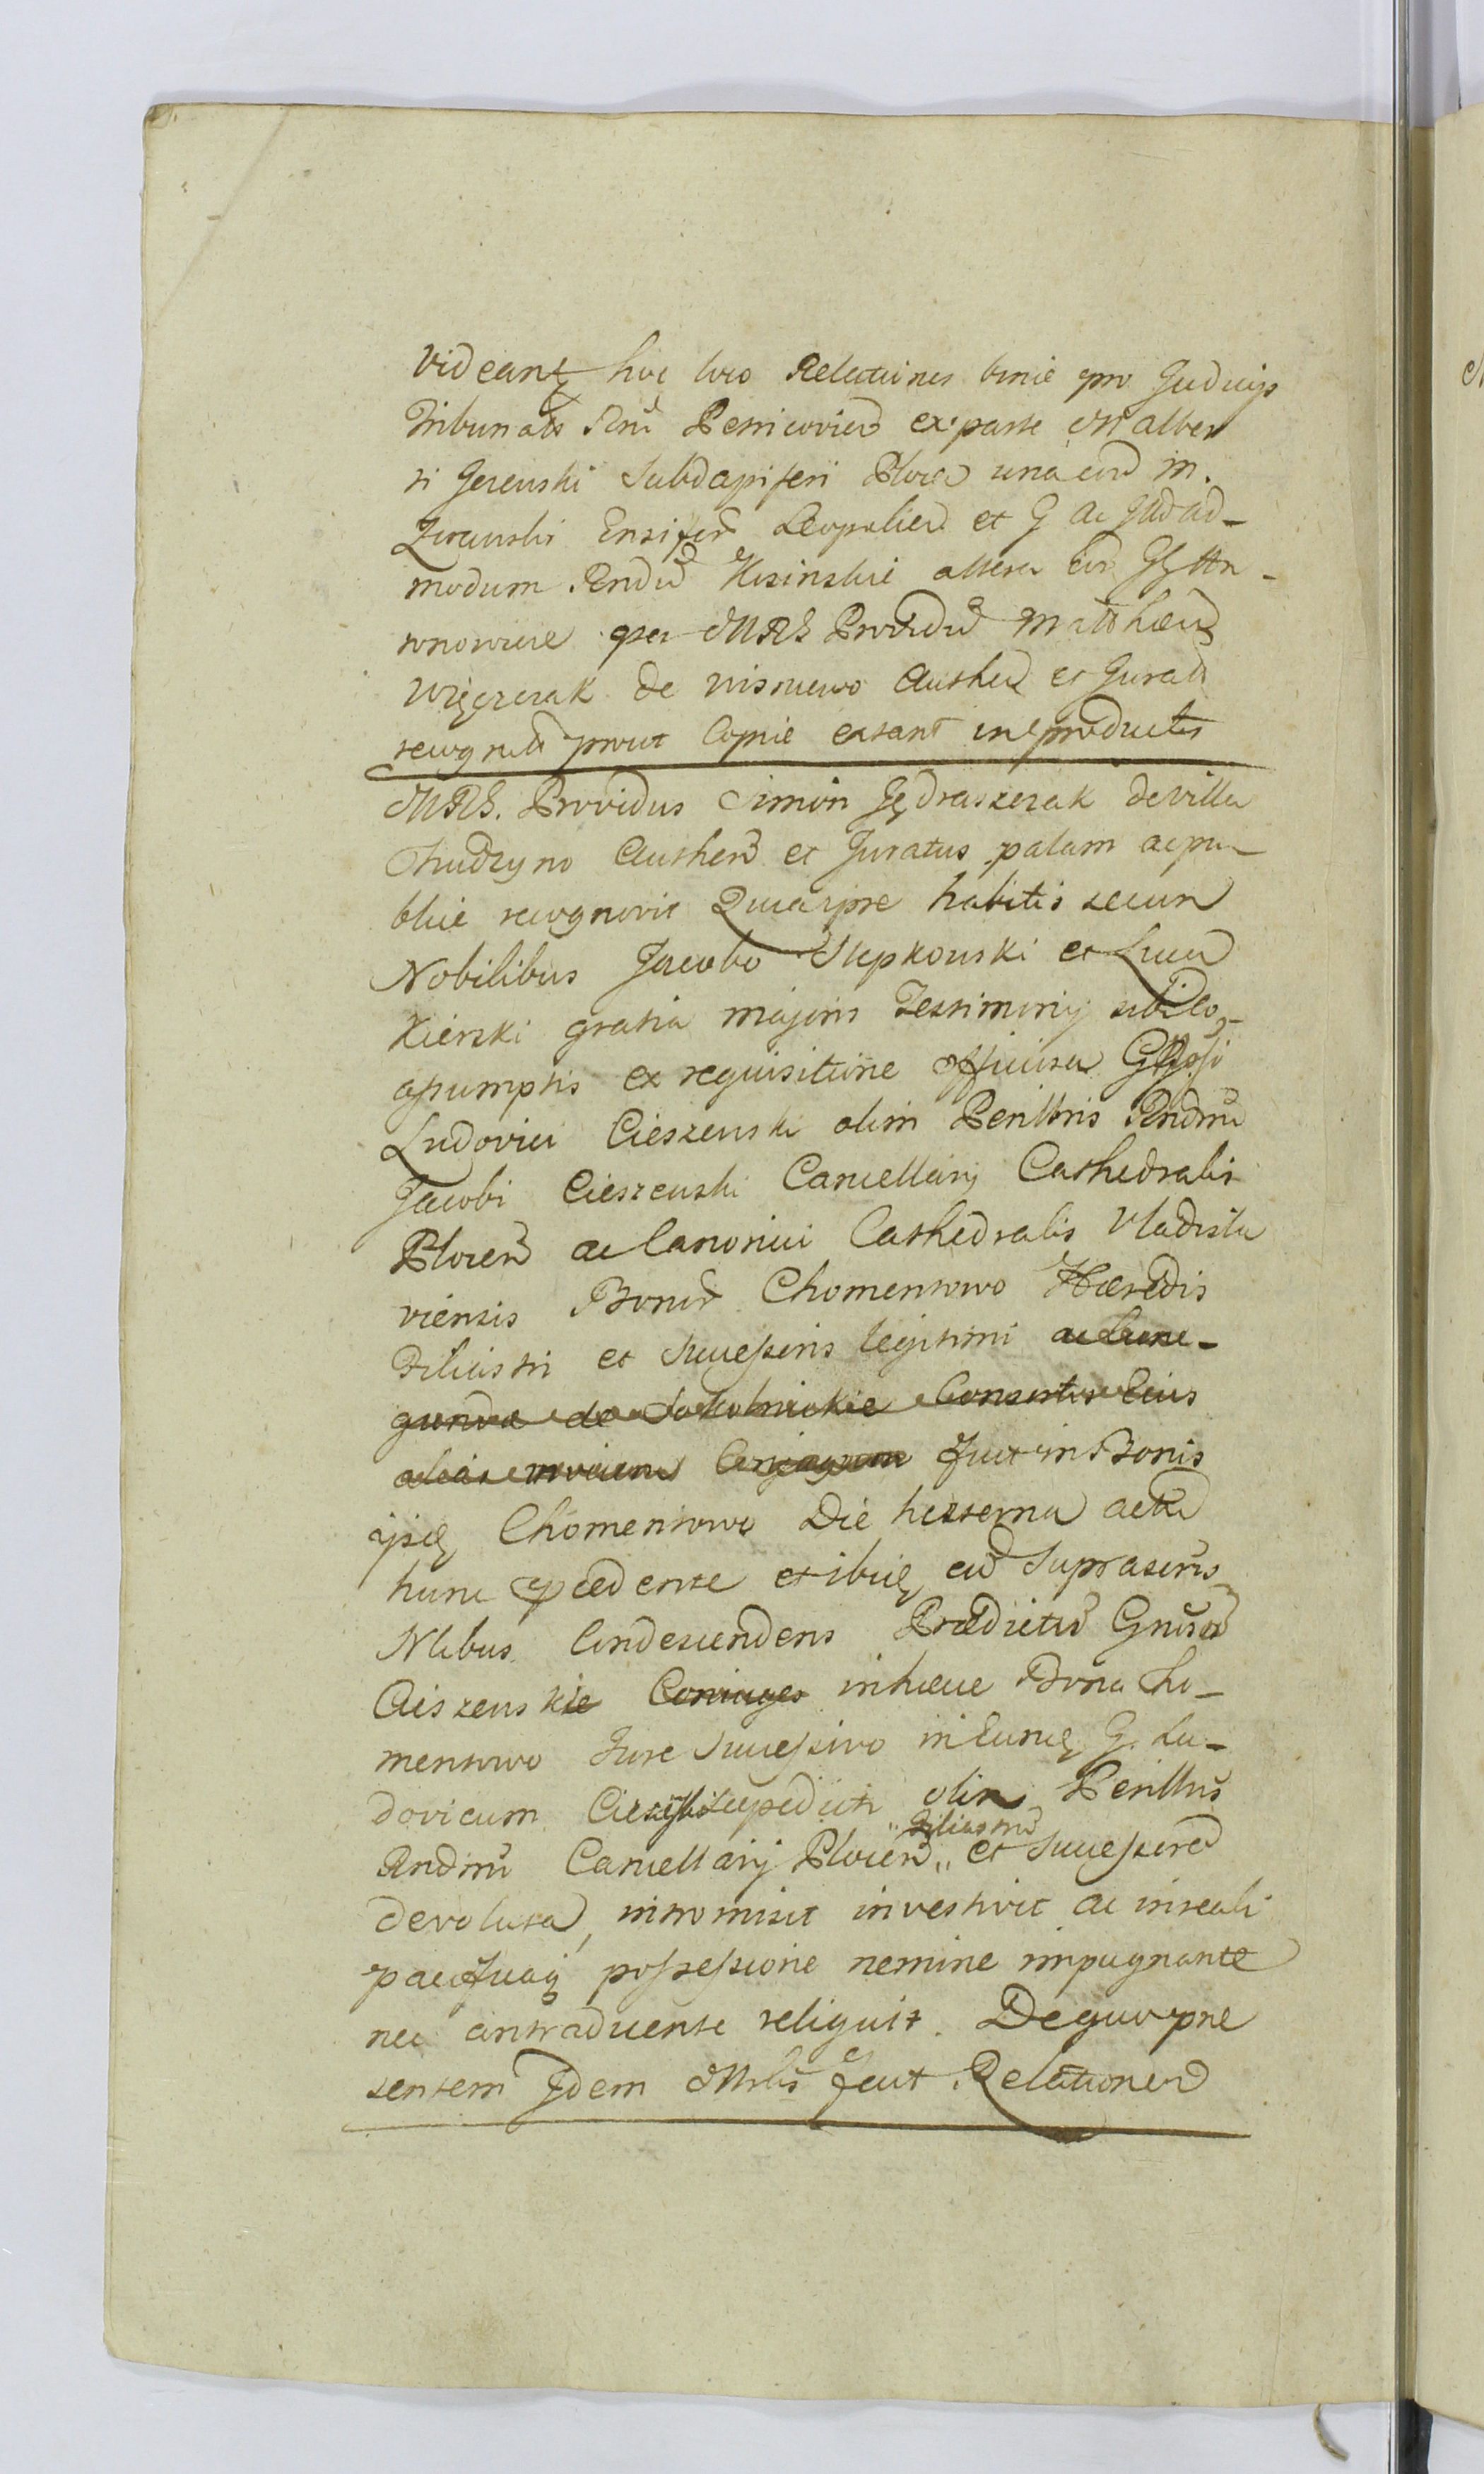 videantꝫ hoc loco Relationes binæ pro Judiciis
Tribunalis Rñi Petricovien̄ ex parte M alber
ti Jezewski Subdapiferi Plocen̄ una cum M.
Ensiferū Leopolien̄ et G ac Adm̄ ad-
modum Rndū Kisinskie altera GG An-
tonowicie per MRG Providū Matthæū
Więczczak de Wisniewo Authen̄ et Jurat̄
recognitæ prout Copiæ extant in productis
MRG. Providus Simon Jędraszczak de villa
Chudzyno Authen̄ et Juratus palam ac pu-
blice recognovit Quia ipse habitis secum
Nobilibus Jacobo Stępkowski et Luca
Kierski gratia majoris Testimonij sibi co-
assumptis ex requisitione officiosa Gsi
Ludovici Cieszewski olim Perillris Rndmi
Jacobi Cieszewski Cancellarij Cathedralis
Plocen̄ ac Canonici Cathedralis Vladisla
viensis Bonor̄ Chomentowo Hæredis
Filiastri et Successoris legitimi ac Cune-
gunda de Sokolnickie Consortis Eius
alias invicem Conjugum fuit in Bonis
ijsdē Chomentowo Die hesterna actū
hunc præcedente et ibidē cū suprascris
Nlibus Condescendens Prædictū Gnūsū
Cieszewskie Coniuges in hæcce Bona Cho-
mentowo Jure Successivo in Eundē G. Lu-
dovicum Cieszewski præedicti olim Perillris
Rndmi Cancellarij Plocen̄ „Filiastrū„ et Successorē
devoluta, intromisit investivit ac in reali
pacificaq̄ possessione nemine impugnante
nec contradicente reliquit. De quo præ
sentem Idem Mrlis fecit Relationem